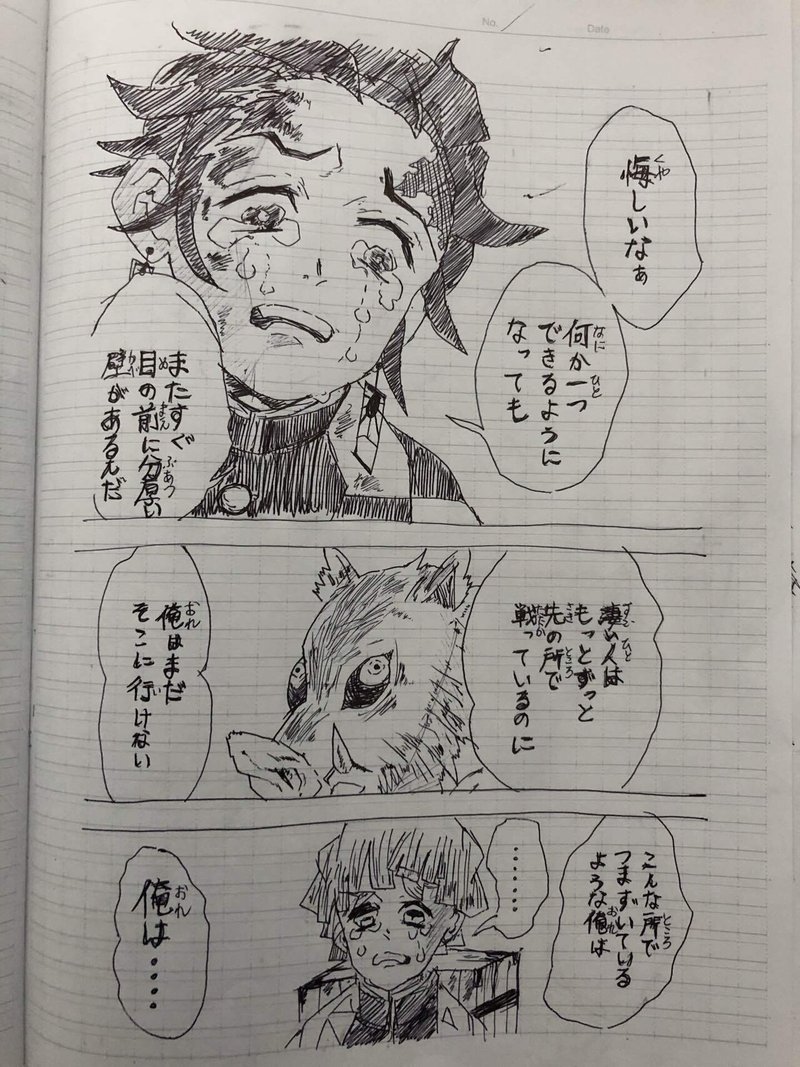 No.
Date
悔しいなぁ
何か一つ
できるように
なっても
またすぐ
目の前に分厚い
壁があるんだ
凄い人は
もっとずっと
先の所で
戦っているのに
俺はまだ
そこに行けない
こんな所で
つまずいている
ような俺は
・・・・・・・
俺は・・・・